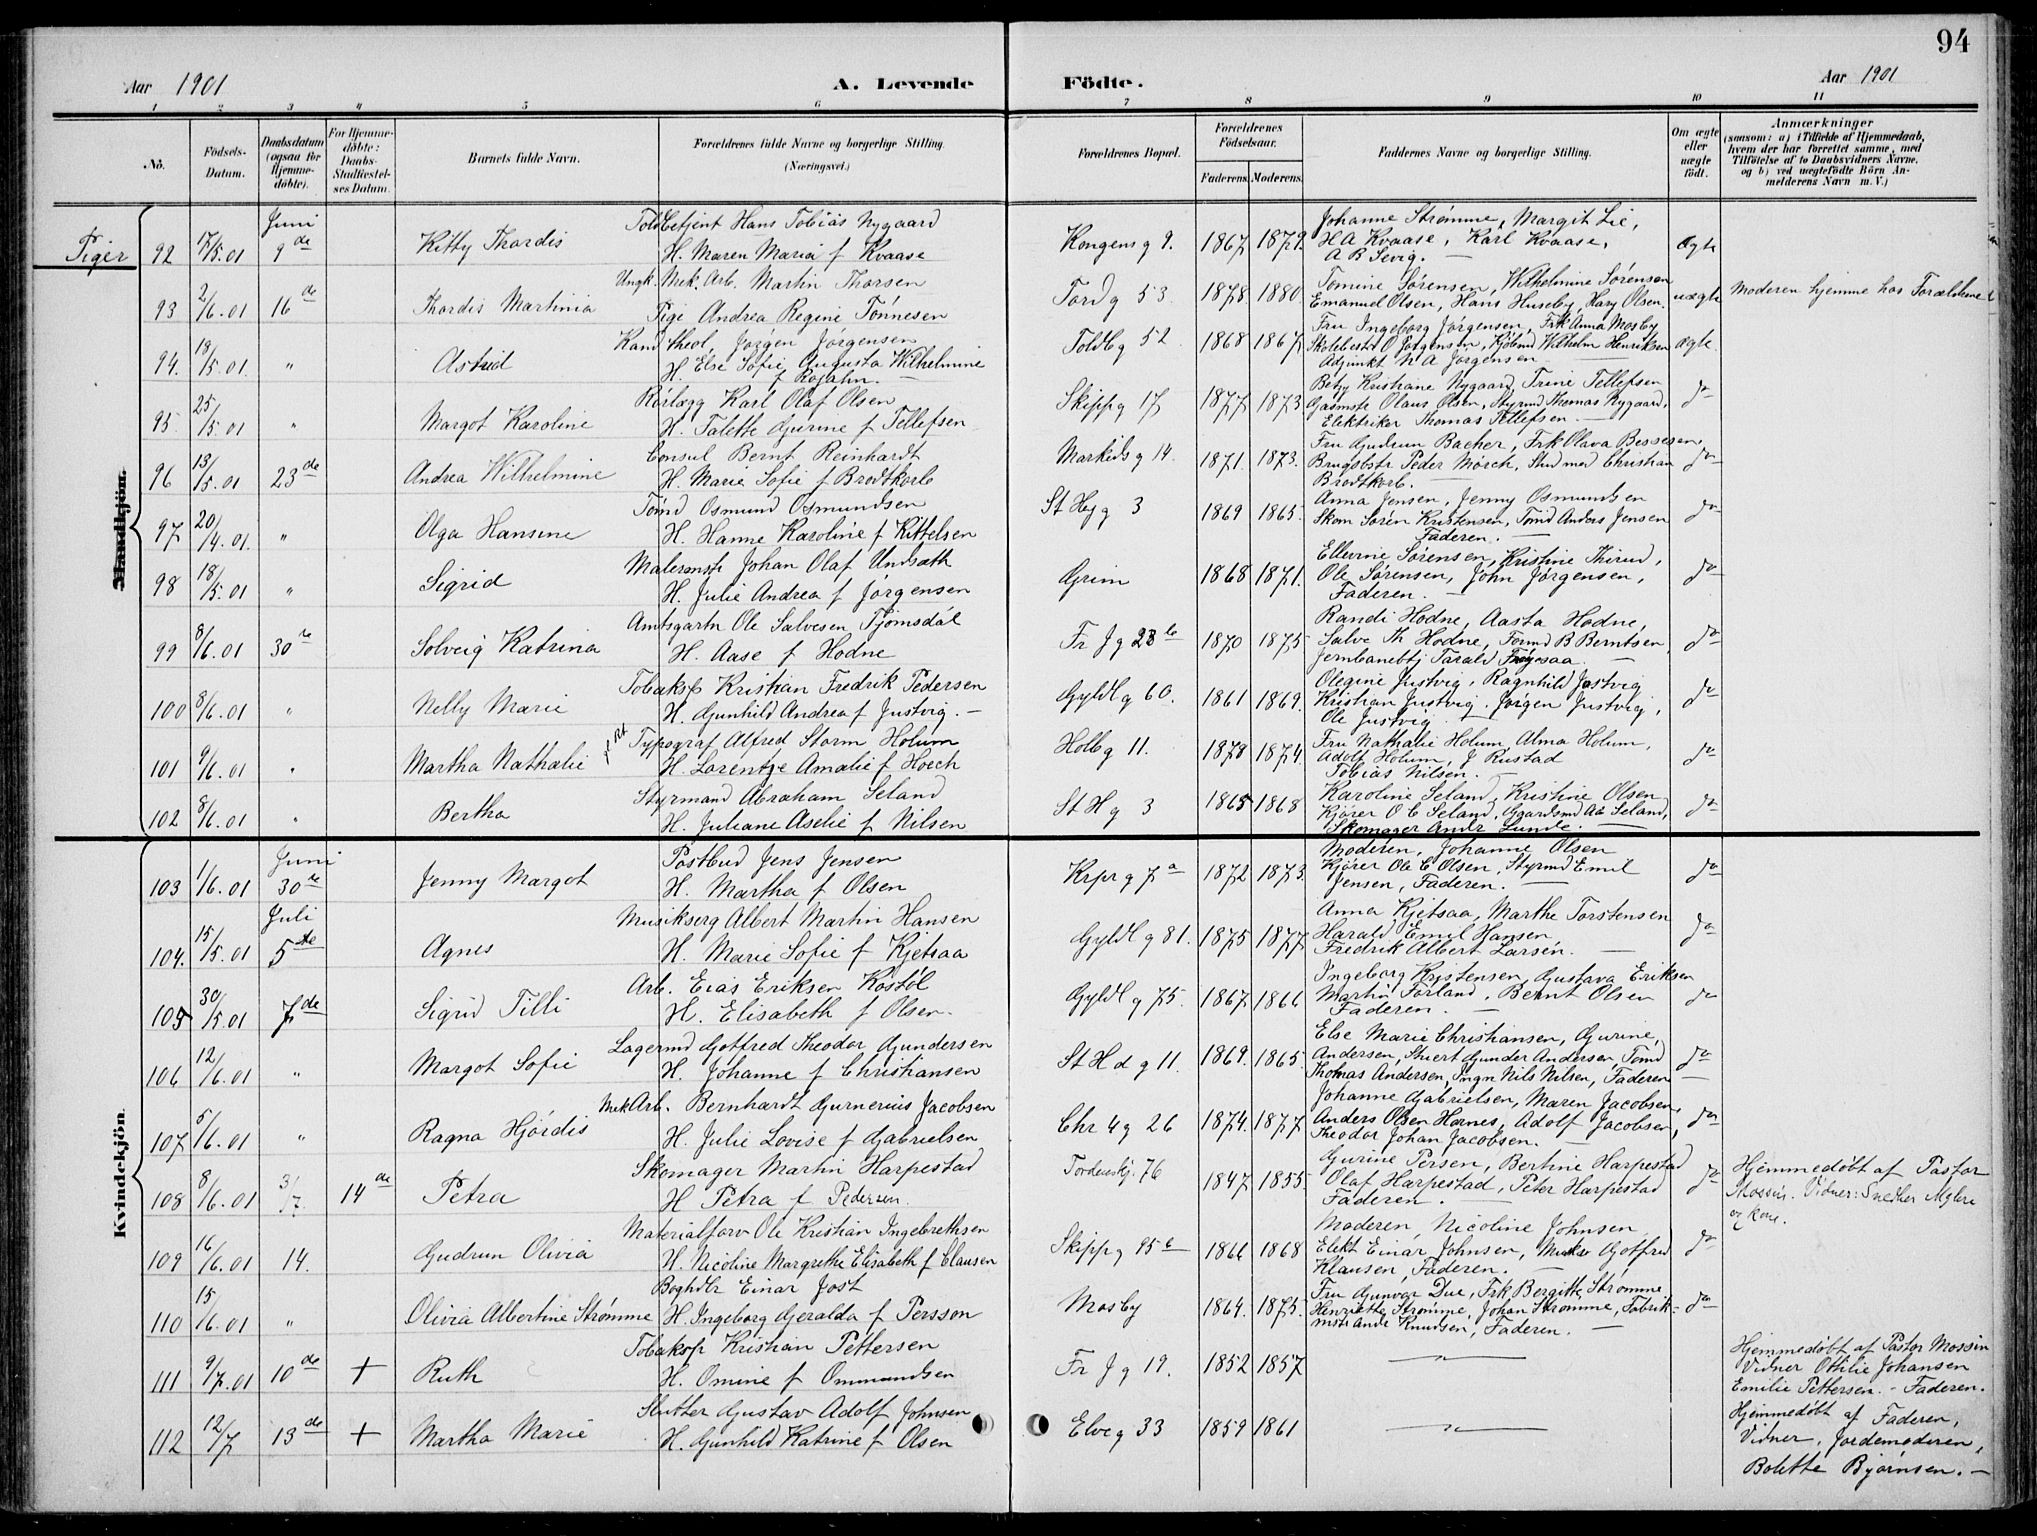 94
Aar 1901
A. Levende Födte.
Aar 1901
1 2 3 4 5 6 7 8 9 10 11
Nô.
Födsels-Datum.
Daabsdatum (ogsaa for Hjemme-döbte).
For Hjemme-döbte: Daabs-Stadfæstel-ses Datum.
Barnets fulde Navn.
Forældrenes fulde Navne og borgerlige Stilling. (Næringsvei.)
Forældrenes Bopæl.
Forældrenes Födselsaar.
Faderens. Moderens.
Faddernes Navne og borgerlige Stilling.
Om ægte eller uægte födt.
Anmærkninger
(saasom: a) i Tilfælde af Hjemmedaab, hvem der har forrettet samme, med Tilföielse af to Daabsvidners Navne. og b) ved uægtefödte Börn An-melderens Navn m. V.)
Piger
Mandkjön.
Kvindekjön.
Juni
Toldbetjent Hans Tobias Nygaard
Johanne Strømme, Margit Lie,
92 7/5.01 9de Kitty Thordis H. Maren Maria f Kvaase Kongens g 9. 1867 1879. H A Kvaase, Karl Kvaase, Ægte
A B Sevig.
Ungk. Mek. Arb. Martin Thorsen
Tomine Sørensen, Wilhelmine Sørensen
93 2/6.01 16de Thordis Martinia Pige Andrea Regine Tønnesen Tord g 53. 1878. 1880. Emanuel Olsen, Hans Huseby, Hary Olsen. uægte Moderen hjemme hos Forældrene
Kand theol, Jørgen Jörgensen
Fru Ingeborg Jörgensen, Frk Anna Mosby
94. 18/5.01. " Astrid H. Else Sofie Augusta Wilhelmine f Rojahn. Toldbg 52 1868 1867 Skolebest O Jörgensen, Kjöbmd Wilhelm Henriksen ægte.
Adjunkt N A Jørgensen
Rørlægg Karl Olaf Olsen
Betzy Kristiane Nygaard, Trine Tellefsen
95. 25/5.01 " Margot Karoline H. Talette Gurine f Tellefsen Skippg 17 1877 1873 Gasmstr Olaus Olsen, Styrmd Thomas Nygaard, do
Elektriker Thomas Tellefsen
Consul Bernt Reinhardt
Fru Gudrun Bacher, Frk Olava Bessesen,
96 13/5.01 23de Andrea Wilhelmine H. Marie Sofie f Brodtkorb Markeds g 14. 1871. 1873. Brugsbstr Peder Mörch, Stud med Christian do
Brodtkorb.
Tømd Osmund Osmundsen
Anna Jensen, Jenny Osmundsen
97 20/4.01. " Olga Hansine H. Hanne Karoline f Kittelsen St Heg g 3 1869 1865. Skom Sören Kristensen, Tømd Anders Jensen do
Faderen.
Malermstr Johan Olaf Undsæth
Ellevine Sørensen, Kristine Thirud,
98 18/5.01 " Sigrid H. Julie Andrea f Jørgensen Grim 1868 1871. Ole Sørensen, John Jørgensen, do
Faderen.
Amtsgartn Ole Salvesen Tjomsdal
Randi Hodne, Aasta Hodne,
99 8/6.01 30te Solveig Katrina H. Aase f Hodne Fr J g 28b 1870 1875 Salve Th Hodne, Tømd B Berntsen, do
Jernbanebtj Tarald Frøysaa
Tobaksp Kristian Fredrik Pedersen
Olegine Justvig, Ragnhild Justvig
100 8/6.01 " Nelly Marie H. Gunhild Andrea f Justvig. Gyldl g 60. 1861 1869. Kristian Justvig, Jörgen Justvig, do
Ole Justvig
Typograf Alfred Storm Holum
Fru Nathalie Holum, Alma Holum,
101 9/6.01 " Martha Nathalie H. Lorentze Amalie f Hoech Holbg 11. 1878 1874. Adolf Holum, J Rustad do
Tobias Nilsen.
Styrmand Abraham Seland
Karoline Seland, Kristine Olsen
102 8/6.01 " Bertha H. Juliane Aselie f Nilsen St H g 3 1865 1868 Kjører O C Seland, Gaardsmd Aa Seland, do
Skomager Andr Lunde.
Juni
Postbud Jens Jensen
Moderen, Johanne Olsen
103 1/6.01 30te Jenny Margot H. Martha f Olsen Krpr g 7a 1872 1873. Kjører Ole C Olsen, Styrmd Emil do
Jensen, Faderen.
Juli
Musikserg Albert Martin Hansen
Anna Kjetsaa, Marthe Torstensen
104. 15/5.01 5te Agnes H. Marie Sofie f Kjetsaa Gyldl g 81. 1875 1877 Harald Emil Hansen do
Fredrik Albert Larsen.
Arb. Eias Eriksen Köstöl
Ingeborg Kristensen, Gustava Eriksen
105 30/5.01 7de Sigrid Tilli H. Elisabeth f Olsen. Gyldl g 75. 1867 1866 Martin Forland, Bernt Olsen do
Faderen.
Lagermd Gotfred Theodor Gundersen
Else Marie Christiansen, Gurine,
106 12/6.01 " Margot Sofie H. Johanne f Christiansen St H d g 11. 1869. 1865. Andersen, Stuert Gunder Andersen, Tømd do
Thomas Andersen, Ingn Nils Nilsen, Faderen
Mek Arb. Bernhardt Gurnerius Jacobsen
Johanne Gabrielsen, Maren Jacobsen,
107 5/6.01 " Ragna Hjördis H. Julie Lovise f Gabrielsen Chr 4 g 26 1874. 1877 Anders Olsen Hornes, Adolf Jacobsen, do
Theodor Johan Jacobsen.
Skomager Martin Harpestad
Gurine Persen, Bertine Harpestad
108 8/6.01 3/7. 14de Petra H Petra f Pedersen. Tordenskj. 76 1847 1855. Olaf Harpestad, Peter Harpestad do Hjemmedøbt af Pastor
Faderen. Mossin. Vidner: Snedker Myhre
og kone.
Materialforv Ole Kristian Ingebrethsen
Moderen, Nicoline Johnsen
109 16/6.01 14. Gudrun Olivia H. Nicoline Margrethe Elisabeth f Clausen Skippg 95b 1866 1868 Elekt Einar Johnsen, Gotfred do
Klausen, Faderen.
Boghdlr Einar Jost
Fru Gunvor Due, Frk Bergitte Strømme
110 15/6.01 " Olivia Albertine Strømme H. Ingeborg Geralda f Persson Mosby 1864. 1875. Henriette Strømme, Johan Strømme, Fabrik- do
mstr Andr Knudsen, Faderen.
Tobaksp Kristian Pettersen
111 9/7.01 10de + Ruth H. Omine f Ommundsen Fr J g 19. 1852 1857 — " — Hjemmedøbt af Pastor Mossin
Vidner Ottilie Johansen
Emilie Pettersen. - Faderen.
Slutter Gustav Adolf Johnsen
112 12/7 13de + Martha Marie H. Gunhild Katrine f Olsen Elveg 33 1859 1861 — " — Hjemmedøbt af Faderen,
Vidner, Jordemoderen,
Bolette Bjørnsen.